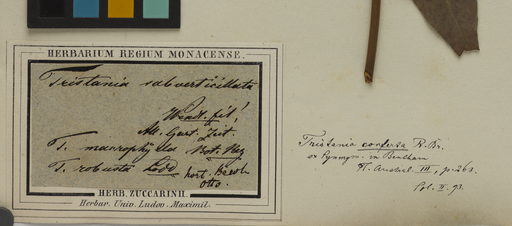 HERBARIUM REGIUM MONACENSE.
Tristania subverticillata
Wendl. fil!
All. Gart. Zeit.
T. macrophylla Bot. Mag
T. robusta Lodd hort. Berol.
Otto.
HERB. ZUCCARINII.
Herbar. Univ. Ludov. Maximil.
Tristania conferta R. Br.
ex Synonym. in Bentham
Fl. austral. III, p. 263.
II. 93.